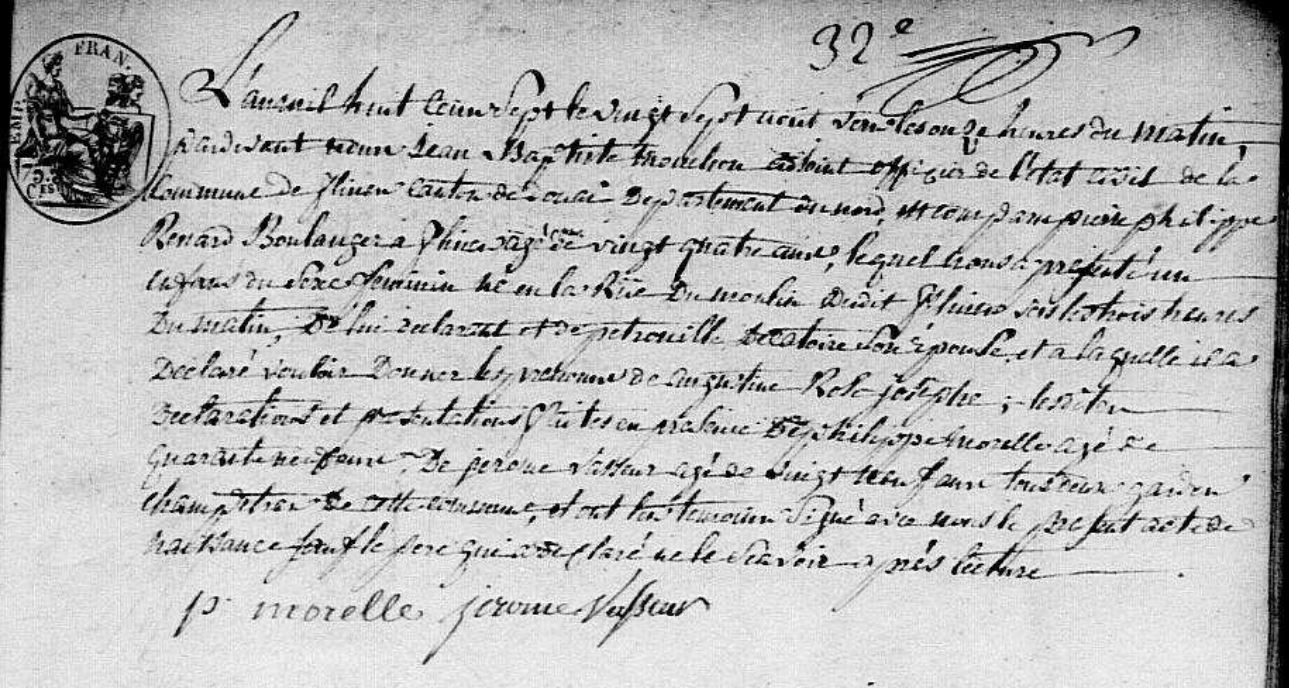 32e
EMP. FRAN.
75 CES
L'an mil huit cent sept le vingt sept août vers les onze heures du matin,
Pardevant nous Jean Baptiste adjoint officier de l'état civil de la
Commune de flines Canton de Douai Département du nord, est comparu pierre philippe
Renard Boulanger a flines agé de vingt quatre ans, lequel nous a presenté un
enfans du Sexe feminin né en la Rüe Du moulin dudit flines vers les trois heures
Du matin, De lui declarant et de petronille Decatoire Son Epouse, et a laquelle il a
Déclaré vouloir Donner les prenoms de augustine Rose josephe, lesditon
Declarations et presentations faites en presence De philippe morelle agé de
quarante neuf ans, De jerome Vasseur agé de vingt neuf ans tous deux garden
champetres de cette commune, et ont les temoins Signé avec nous le present acte de
naissance sauf le pere qui a declaré ne le Scavoir après lecture
p. morelle jerome Vasseur